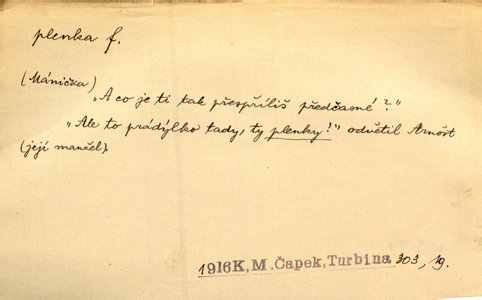 plenka f.
(Mánička)
„A co je ti tak přespříliš předčasné?"
„Ale to prádýlko tady, ty plenky!" odvětil Arnošt
(její manžel).
1916K, M. Čapek, Turbina 303, 19.